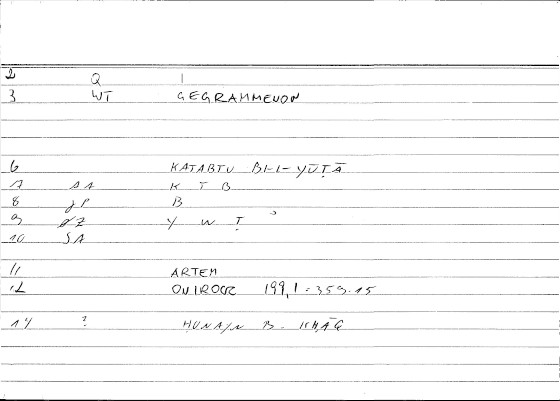 2 Q 1
3 WT GEGRAMMENON
6 KATABTU BI-L-YŪṬĀ
7 AA K T B
8 gP B
9 ⱥZ Y W Ṭ ʾ
10 SA
11 ARTEM
12 ONIROCR 199,1 = 359.15
14 ? ḤUNAYN B. ISḤĀQ